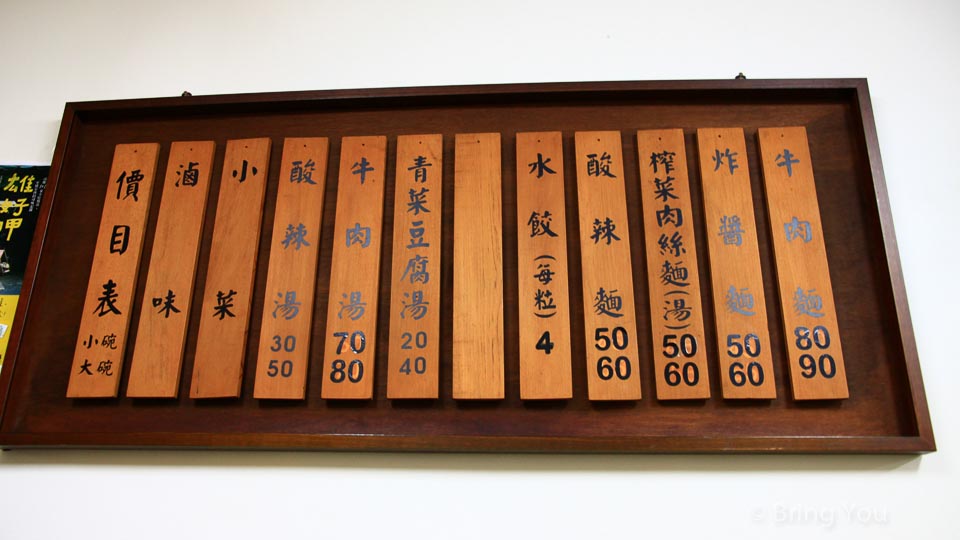 價目表
小碗
大碗
滷味
小菜
酸辣湯
30
50
牛肉湯
70
80
青菜豆腐湯
20
40
水餃(每粒)
4
酸辣麵
50
60
榨菜肉絲麵(湯)
50
60
炸醬麵
50
60
牛肉麵
80
90
雄好呷
© Bring You